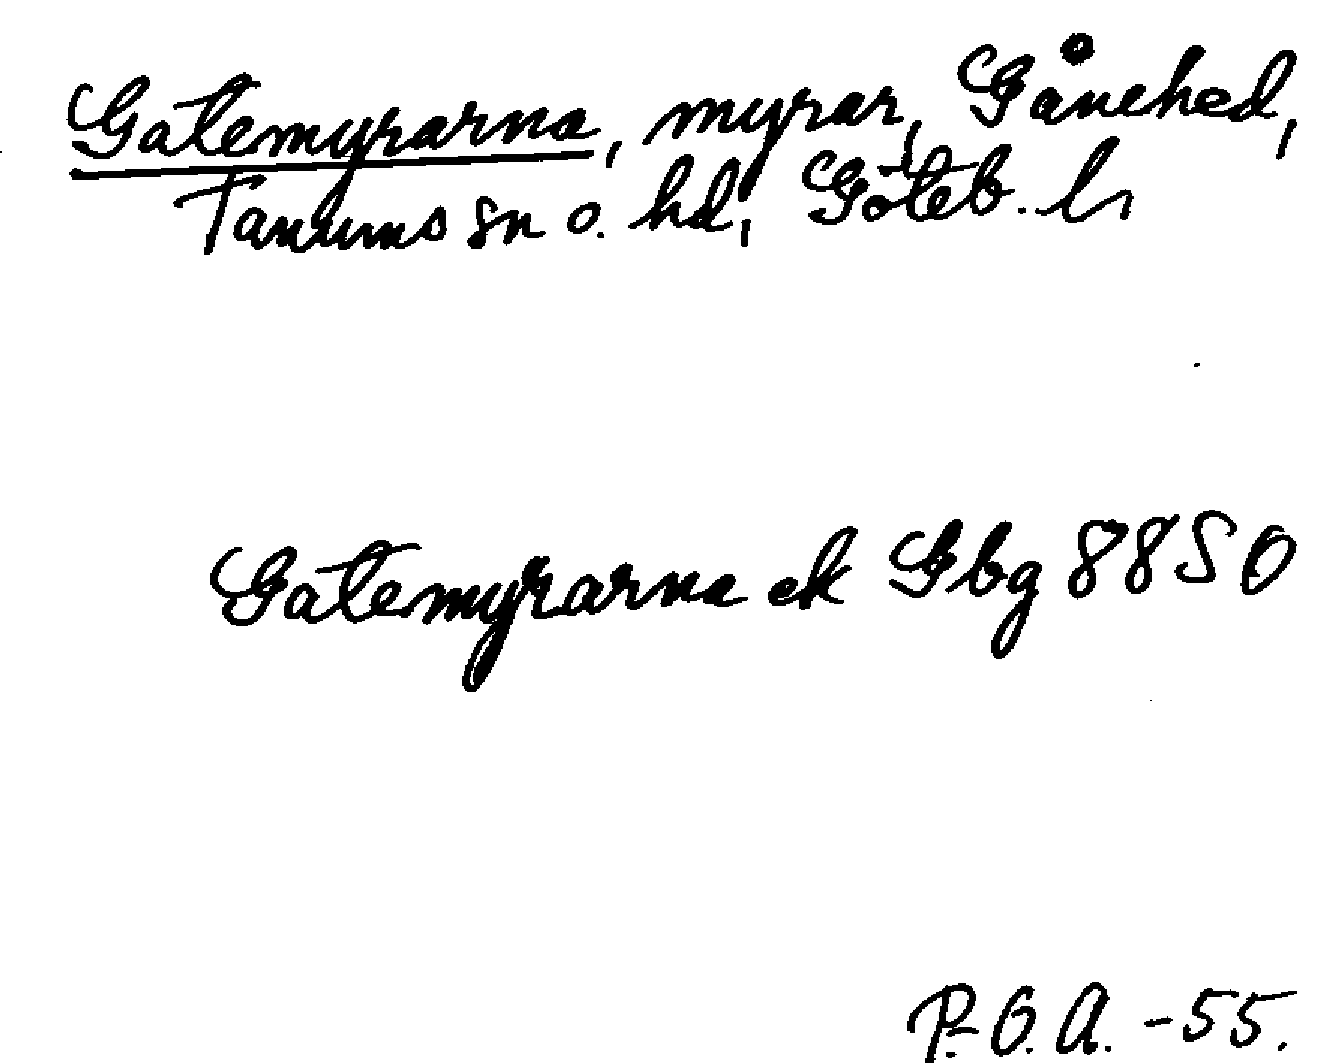 Gatemyrarna, myrar, Gånehed,
Tanums sn o. hd, Göteb. l.
Gatemyrarna ek Gbg 88 SO
P.O.A. -55.